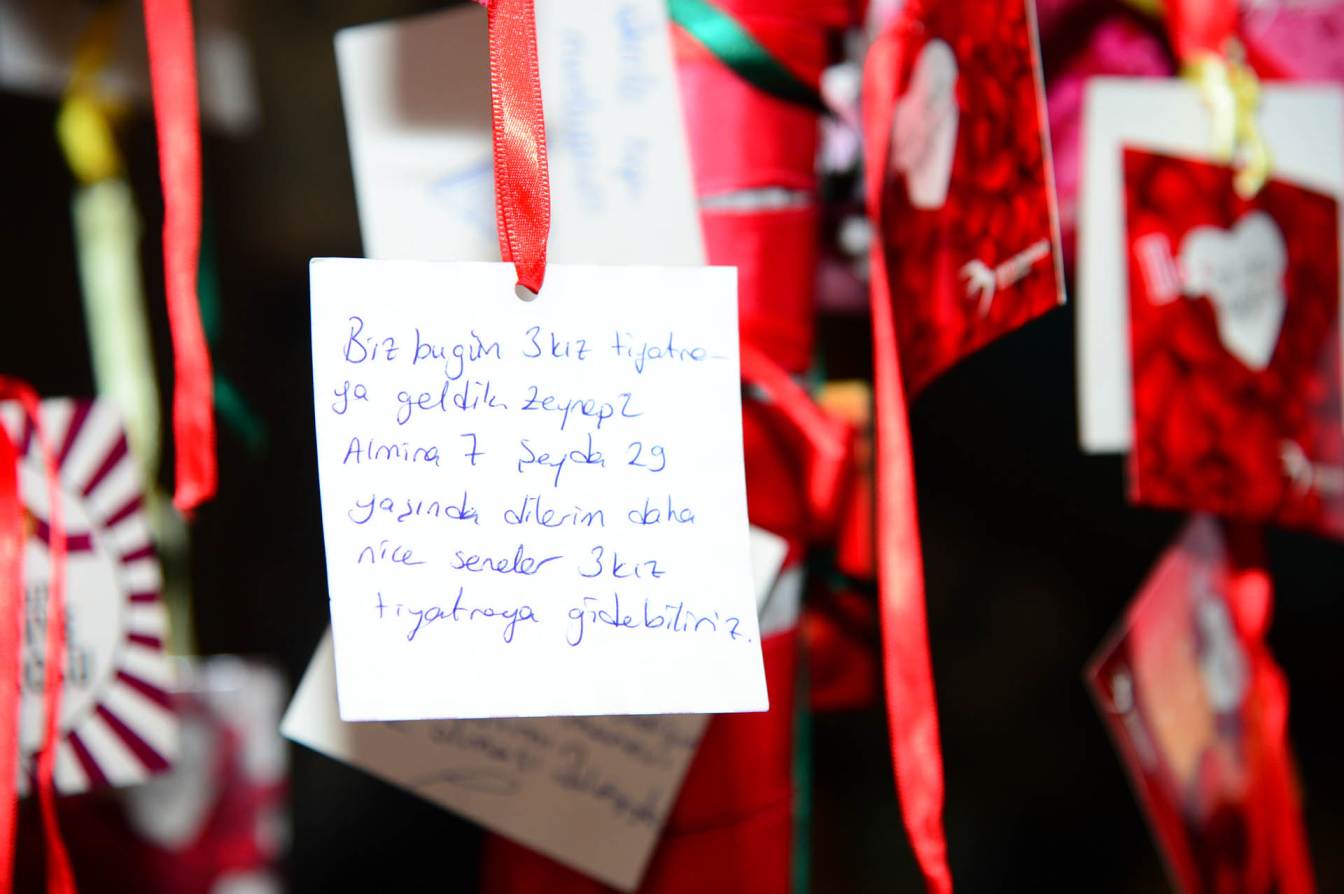 Biz bugün 3 kız tiyatro-
ya geldik Zeynep 2
Almina 7 Şeyda 29
yaşında dilerim daha
nice seneler 3 kız
tiyatroya gidebiliriz.